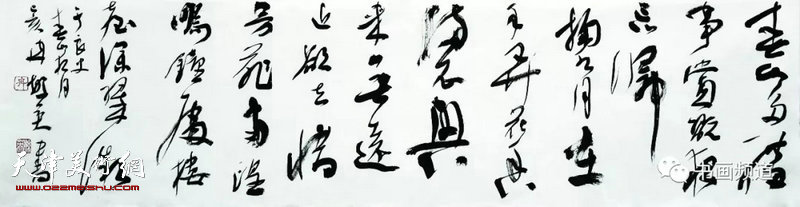 春山多勝
事賞玩夜
忘歸
掬水月在
手弄花香
滿衣興
来無遠
近欲去惜
芳菲南望
鳴鐘處樓
臺深翠微
于良史
春山夜月
書
天津美术网
www.022meishu.com
书画频道